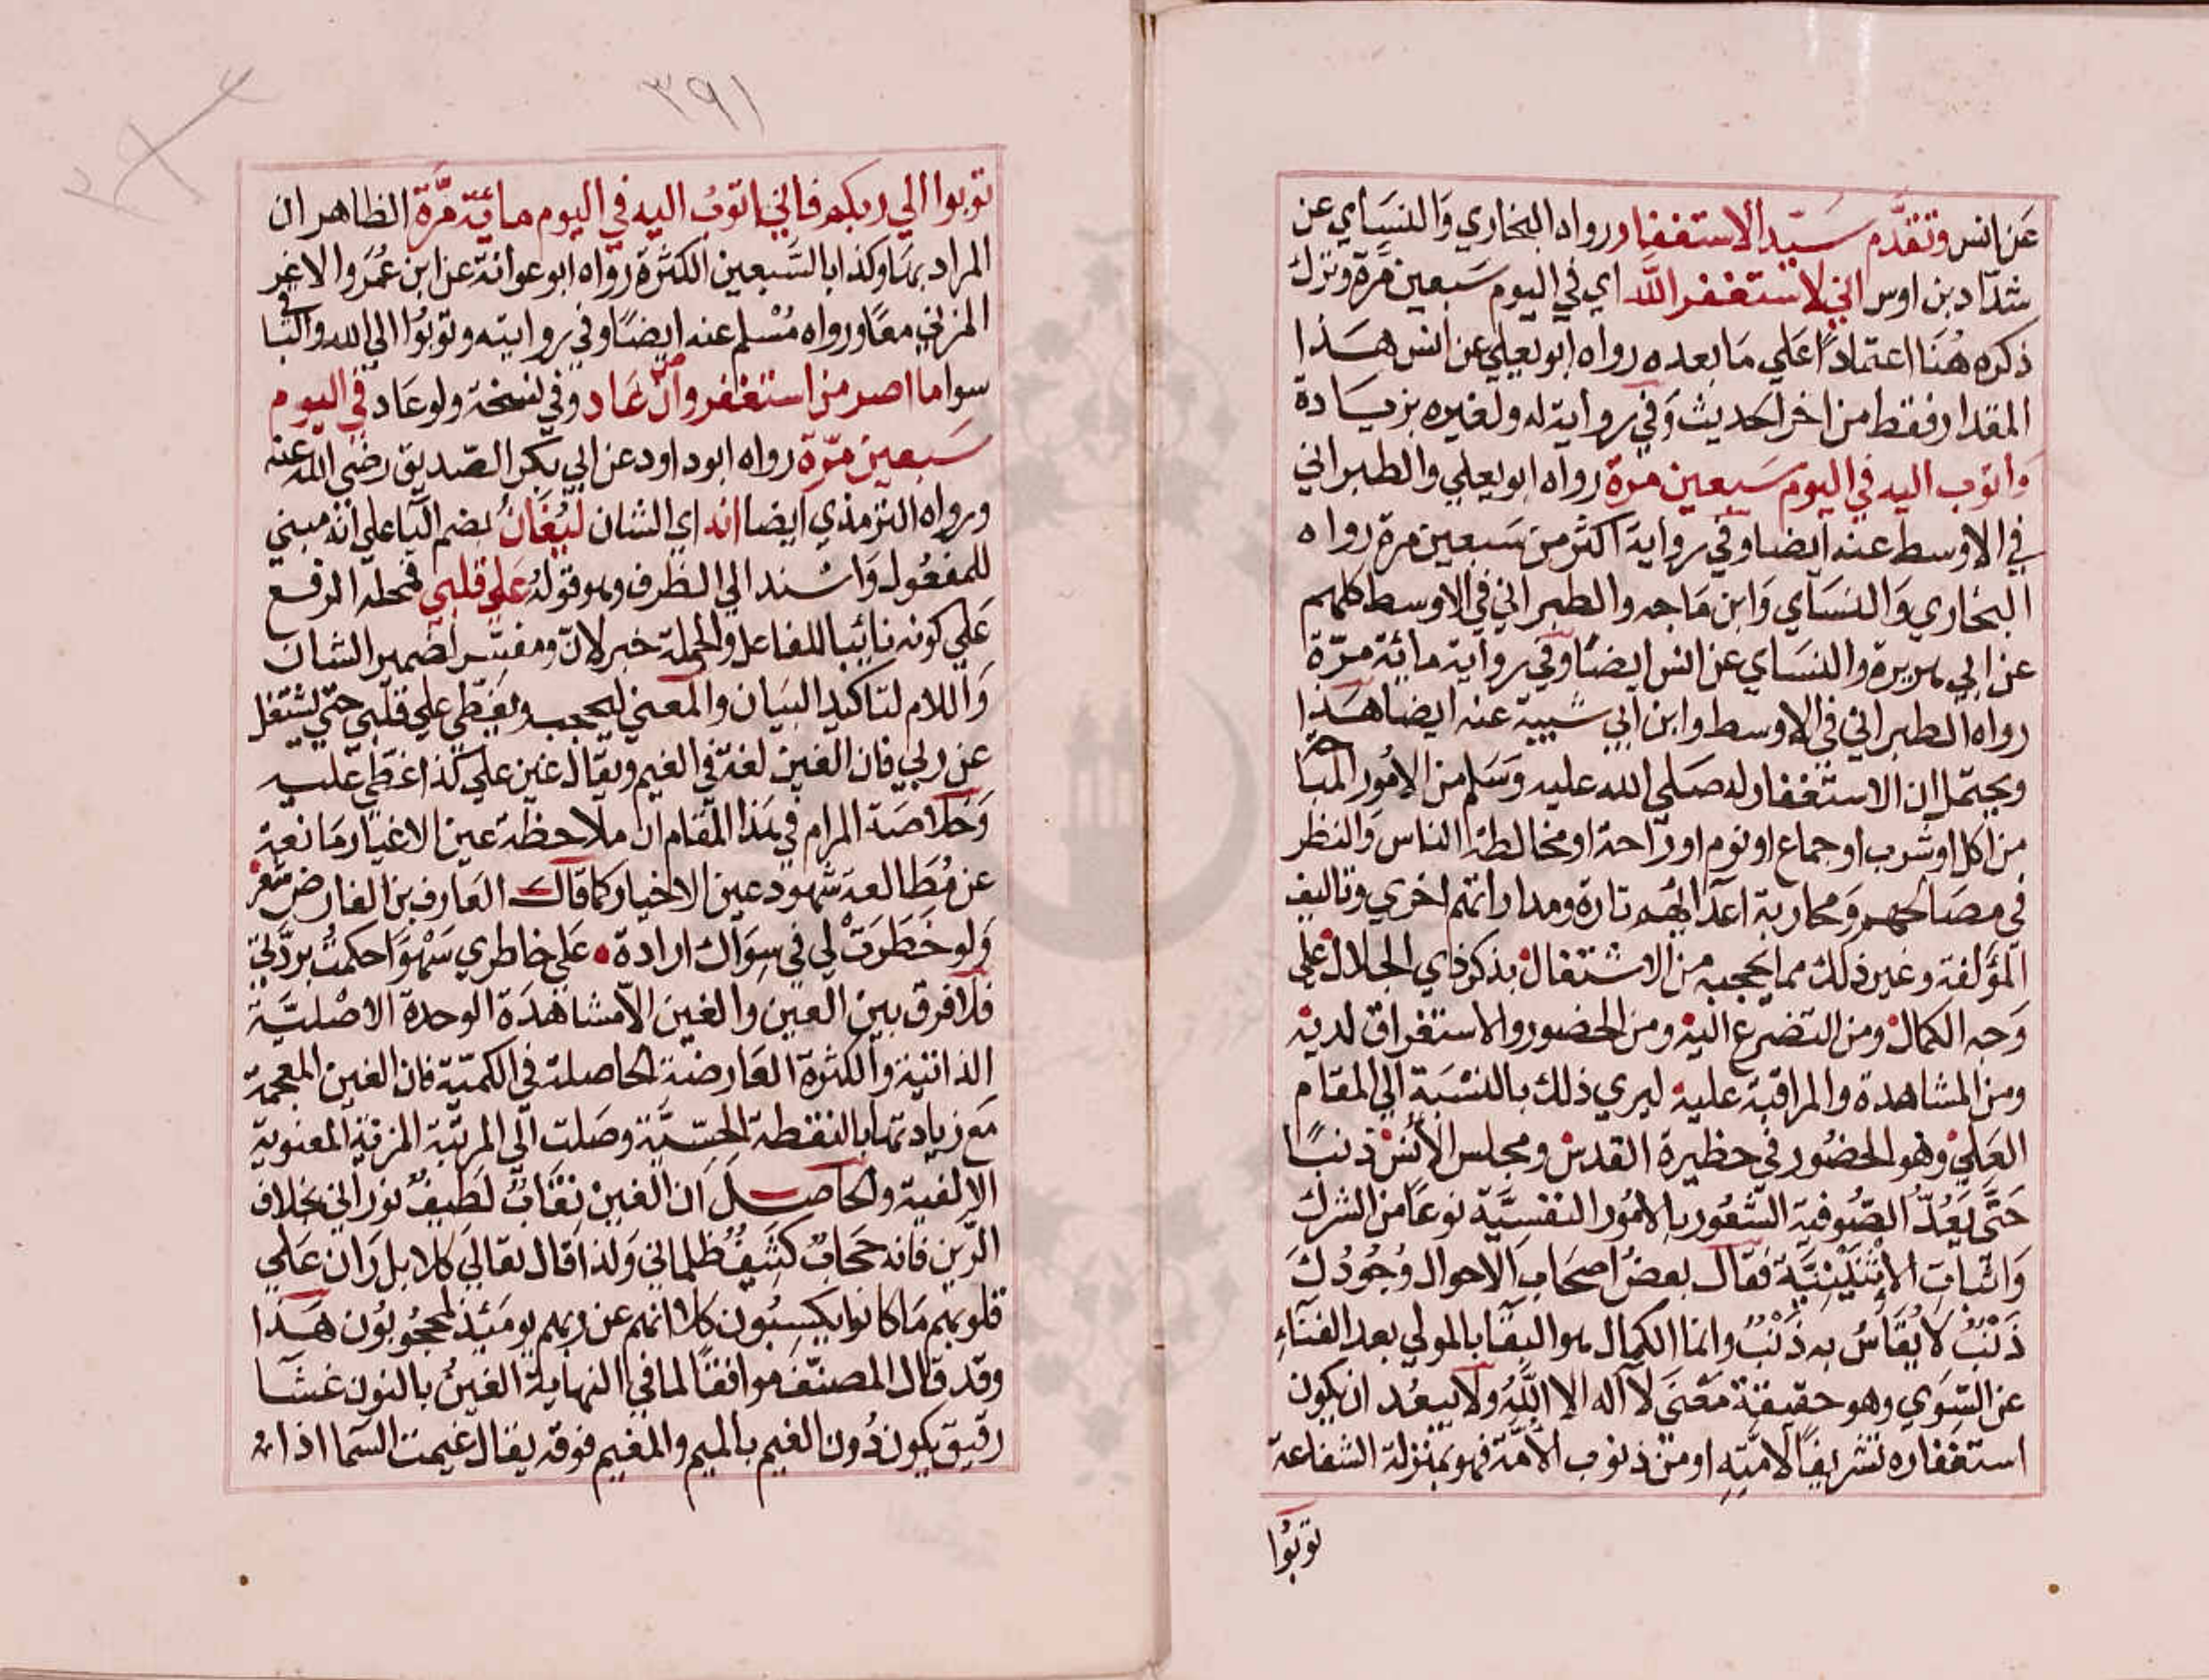 عَن انس وتقدَّم سَيّد الاستغفار رواه البخاري وَالنسَاي عن
شدّاد بن اوس اني لاستغفر اللّه اي في اليوم سَبعين مَرة وترك
ذكره هُنَا اعتمادًا علي مَا بعده رواه ابو يعلي عن انس هَذا
المقدار فقط من اخر الحديث وَفي رواية له ولغيره بزيَادة
وَاتوب اليه في اليوم سَبعين مرة رواه ابو يعلي والطبراني
في الاوسط عنه ايضا وفي رواية اكثر من سَبعين مرة رواه
البخاري وَالنسَاي وَابن مَاجه والطبراني في الاوسط كلهم
عن ابي هريرة والنسَاي عن انس ايضًا وفي رواية مائة مرّة
رواه الطبراني في الاوسط وابن ابي شيبة عنه ايضا هَذا
ويحتمل ان الاستغفار له صَلي الله عليه وَسَلم من الامُور المبَاحة
من اكل او شرب او جماع او نوم او رَاحة او مخالطة الناس وَالنظر
في مصَالحهم وَمحاربة اعدَائهم تارة ومداراتهم اخري وتاليف
المؤلفة وغير ذلك مما يحجبه من الاشتغال بذكر ذي الجلال علي
وَجه الكمال ومن التضرع اليه ومن الحضور والاستغراق لديه
ومن المشاهدة والمراقبة عليه ليري ذلك بالنسْبَة الي المقام
العَلي وهو الحضُور في حظيرة القدس ومجلس الأنس ذنبًا
حَتَّى يَعُدّ الصُّوفية الشعُور بالامُور النفسيَّة نوعَا من الشرك
وَاثبات الإثنَيْنِيَّة فقال بعضُ اصحَاب الاحوال وُجُودُكَ
ذَنْبٌ لَا يُقَاسُ به ذَنْبٌ وانما الكمال هو البقَا بالمولي بعد الفنَاءِ
عن السِّوَي وهو حقيقة مَعْنَى لآ اله الا اللَّهُ ولا يبعُد ان يكون
استغفاره تشريفًا لامّتِهِ او من ذنوب الأمَّة فهو بمنزلة الشفاعة
توبُوا
٣٩١
توبوا الي ربكم فاني اتوبُ اليه في اليوم مائة مَّرة الظاهر ان
المراد بهَا وكذا بالسَّبعين الكثرة رواه ابو عوانة عن ابن عُمَر والاغر
المزني معًا ورواه مُسْلم عنه ايضًا وفي روايته وتوبُوا الي الله والبَاقي
سوا ما اصر من استغفر وان عَاد وفي نسخة ولو عَاد في اليوم
سَبعين مرّة رواه ابو داود عن ابي بكر الصّديق رضي الله عنه
ورواه الترمذي ايضا انه اي الشان ليُغَانُ بضم اليَا علي انه مبني
للمفعُول وَاسْند الي الظرف وهو قولهُ عَلي قلبي فمحله الرفع
عَلي كونه نائبا للفاعل والجملة خبر لانّ ومفسّر لضمير الشان
وَاللام لتاكيد البيَان والمعني ليحجب ويغطي علي قلبي حتّي يشتغل
عن ربي فان الغين لغة في الغيم ويقال غين علي كذا غطي عليه
وَخلاصَة المرام في هَذا المقام ان ملاحظة عين الاغيار مَانعة
عن مُطَالعة شهود عين الاخيار كما قال العَارف بن الفارض شعر
وَلو خَطَرَتْ لي في سِوَاك ارادة • عَلي خاطري سَهْوًا حكمتُ بردّتي
فلا فرق بين العين والغين الا مشاهدَة الوحدة الاصْليَّة
الذاتية والكثرة العَارضة الحاصلة في الكميّة فان الغين المعجمة
مَع زيادتها بالنقطة الحِسّيَّة وصَلت الي المرتبة المزية المعنوية
الالفية والحاصل ان الغين نِقَابٌ لطيفٌ نوراني بخلاف
الرّين فانه حجَابٌ كثيفٌ ظلماني وَلذا قال تعَالي كلا بل رَان عَلي
قلوبهم مَا كانوا يكسِبُون كلا انهم عن ربهم يومَئذٍ لمحجُوبُون هَذا
وقد قال المصنّف موافقًا لما في النهاية الغينُ بالنون غشَا
رقيق يكون دُون الغيم بالميم والمغيم فوقه يقال غيمت السّما اذا